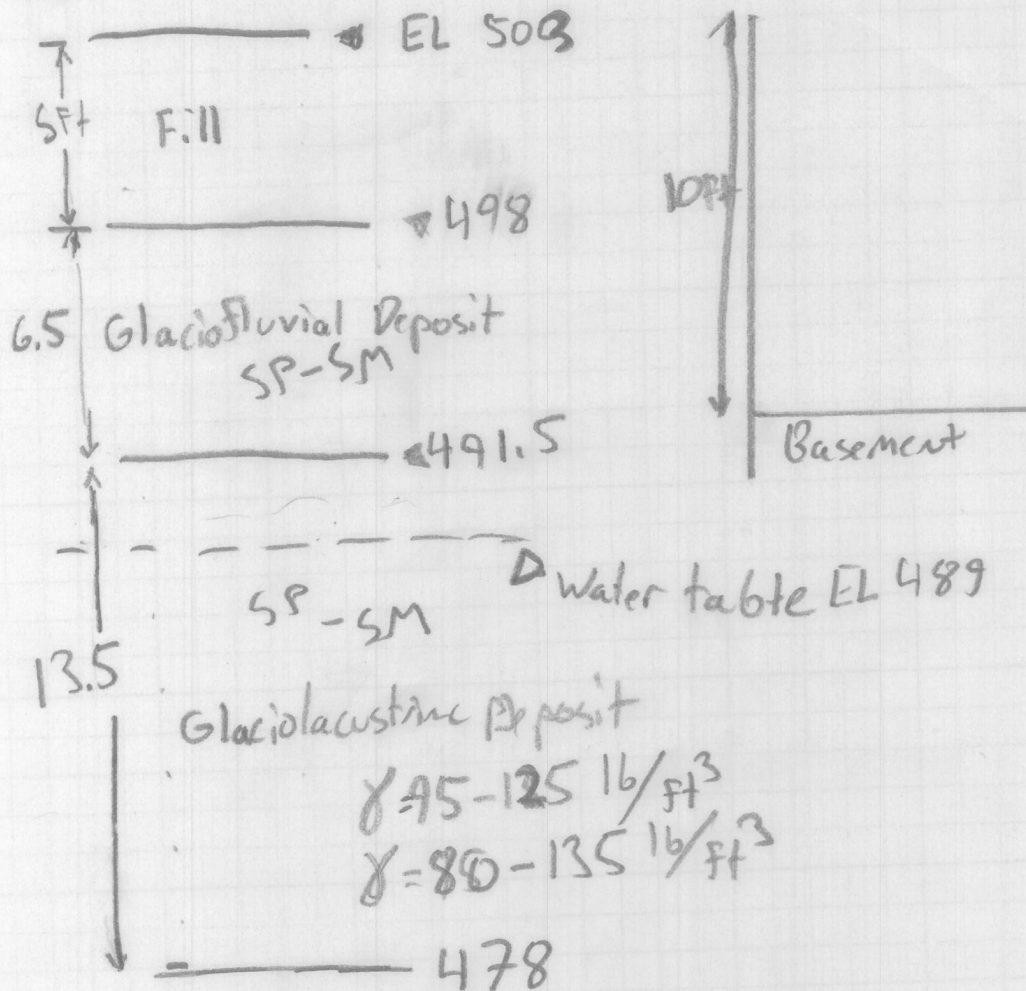 EL 503
5Ft Fill
498
10Ft
6.5 Glaciofluvial Deposit
SP-SM
491.5
Basement
Water table EL 489
SP-SM
13.5
Glaciolacustrine Deposit
γ=95-125 lb/ft³
γ=880-135 lb/ft³
478